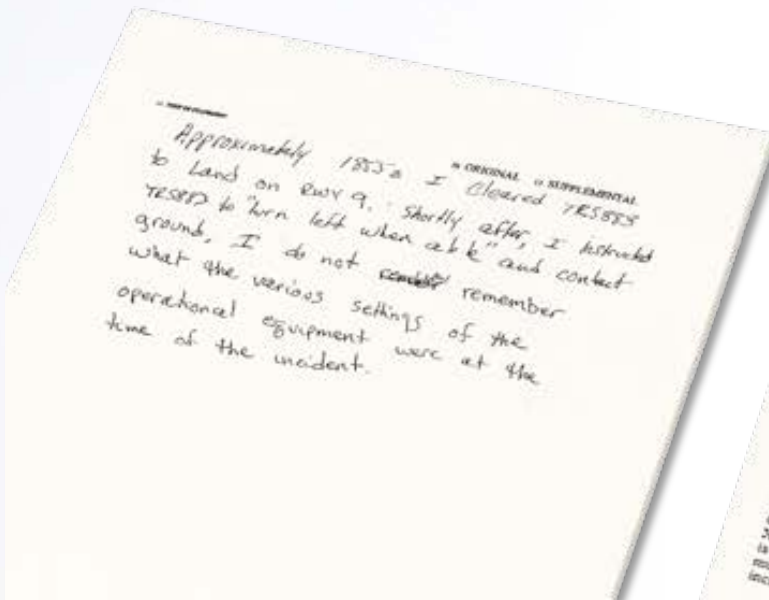 ORIGINAL SUPPLEMENTAL
Approximately 1855z I Cleared TRS883
to Land on RWY 9. Shortly after, I instructed
TRS883 to "turn left when able" and contact
ground, I do not remember
what the various settings of the
operational equipment were at the
time of the incident.